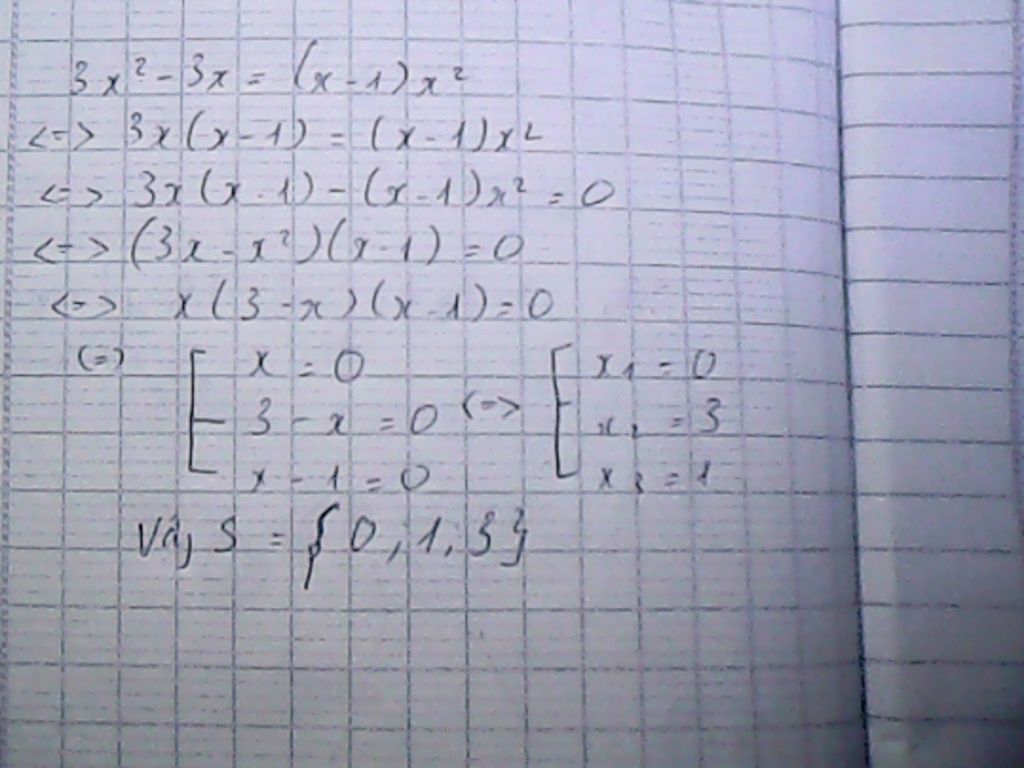 3x² - 3x = (x - 1)x²
<=> 3x(x - 1) = (x - 1)x²
<=> 3x(x - 1) - (x - 1)x² = 0
<=> (3x - x²)(x - 1) = 0
<=> x(3 - x)(x - 1) = 0
(=) [ x = 0 [ x₁ = 0
3 - x = 0 <=> x₂ = 3
x - 1 = 0 x₃ = 1
S = {0, 1, 3}